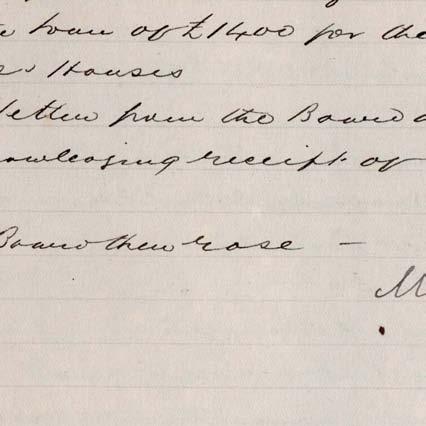 loan of £1400 for the
Houses
letter from the Board
owledging receipt of
Board then rose —
M